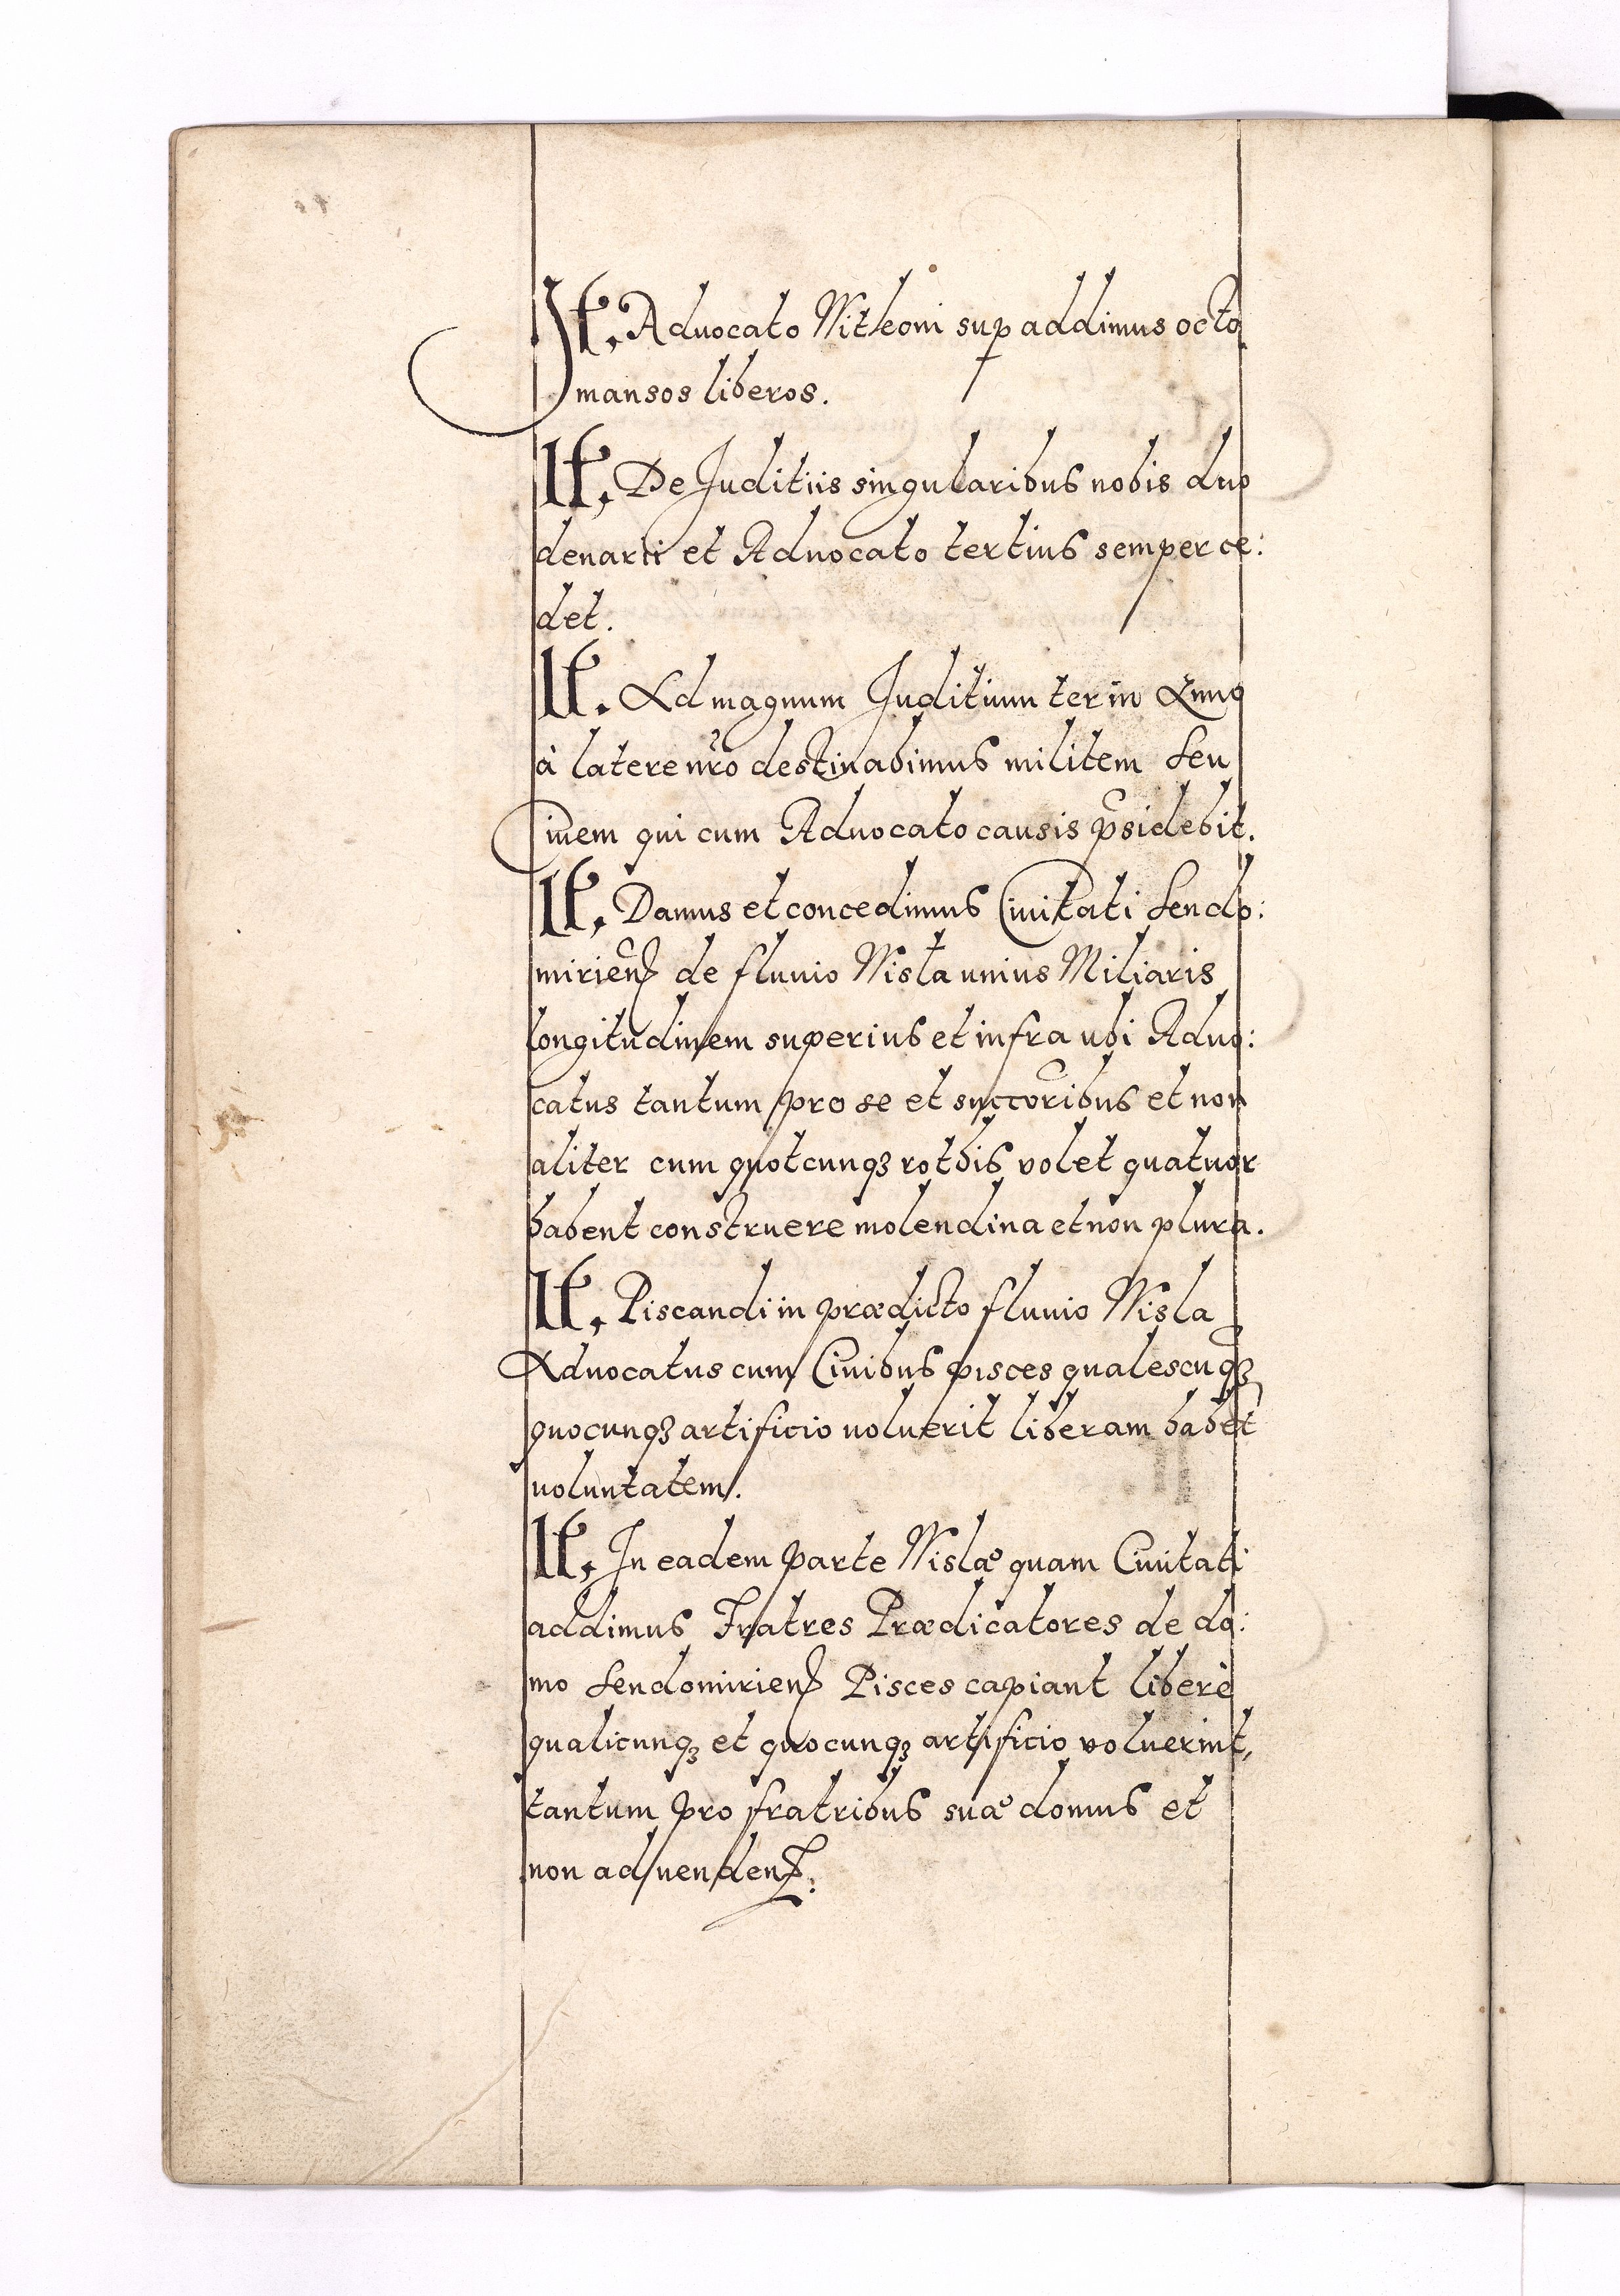 It. Advocato Witkoni sup addimus octo
mansos liberos.
It. De Juditiis singularibus nobis duo
denarii et Advocato tertius semper ce:
det.
It. Ad magnum Juditium ter in Anno
à latere nro destinabimus militem seu
Civem qui cum Advocato causis psidebit.
It. Damus et concedimus Civitati Sendo:
mirien de fluvio Wisla unius Miliaris
longitudinem superius et infra ubi Advo:
catus tantum pro se et succoribus et non
aliter cum quotcunqꝫ rothis volet quatuor
habent construere molendina et non plura.
It. Piscandi in prædicto fluvio Wisla
Advocatus cum Civibus pisces qualescuqꝫ
quocunqꝫ artificio voluerit liberam habet
voluntatem.
It. In eadem parte Wislæ quam Civitati
addimus Fratres Prædicatores de do:
mo Sendomirien Pisces capiant liberè
qualicunqꝫ et quocunqꝫ artificio voluerint,
tantum pro fratribus suæ domus et
non ad venden: